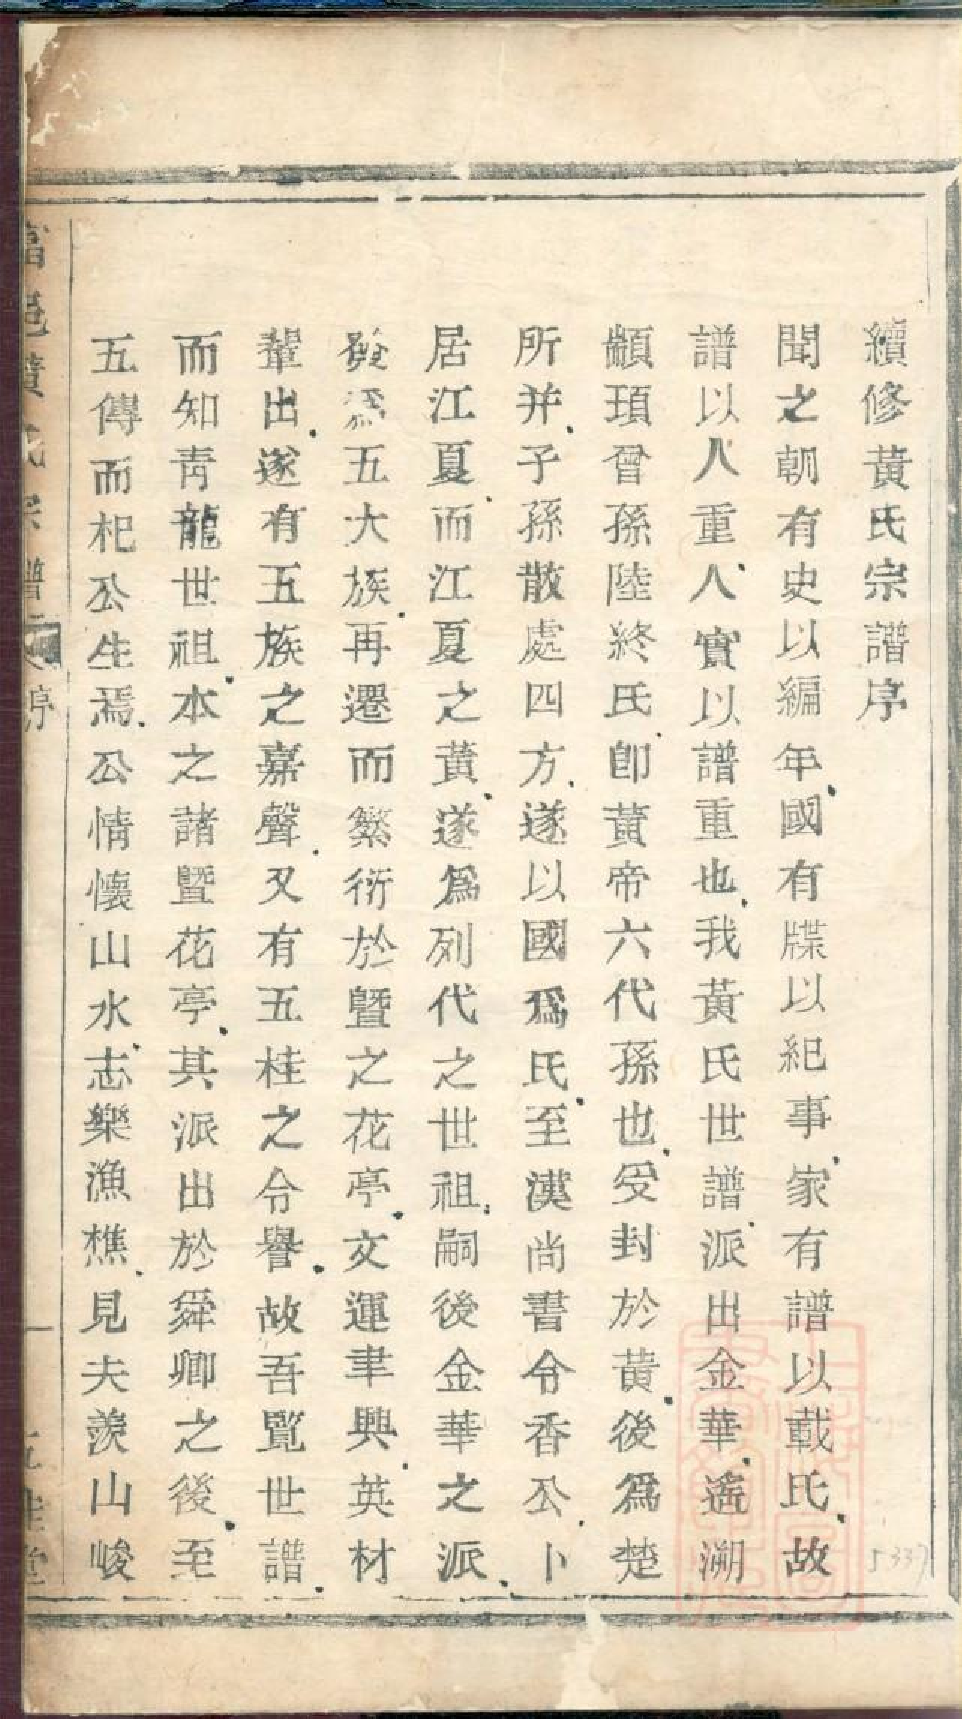 續修黃氏宗譜序
聞之朝有史以編年國有牒以紀事家有譜以載氏故
譜以人重人實以譜重也我黃氏世譜派出金華遙溯
顓頊曾孫陸終氏卽黃帝六代孫也受封於黃後爲楚
所并子孫散處四方遂以國爲氏至漢尚書令香公卜
居江夏而江夏之黃遂爲列代之世祖嗣後金華之派
爲五大族再遷而繁衍於曁之花亭文運聿興英材
輩出遂有五族之嘉聲又有五桂之令譽故吾覽世譜
而知青龍世祖本之諸曁花亭其派出於舜卿之後至
五傳而杞公生焉公情懷山水志樂漁樵見夫羨山峻
富邑黃氏宗譜 序 一 五桂堂
5337